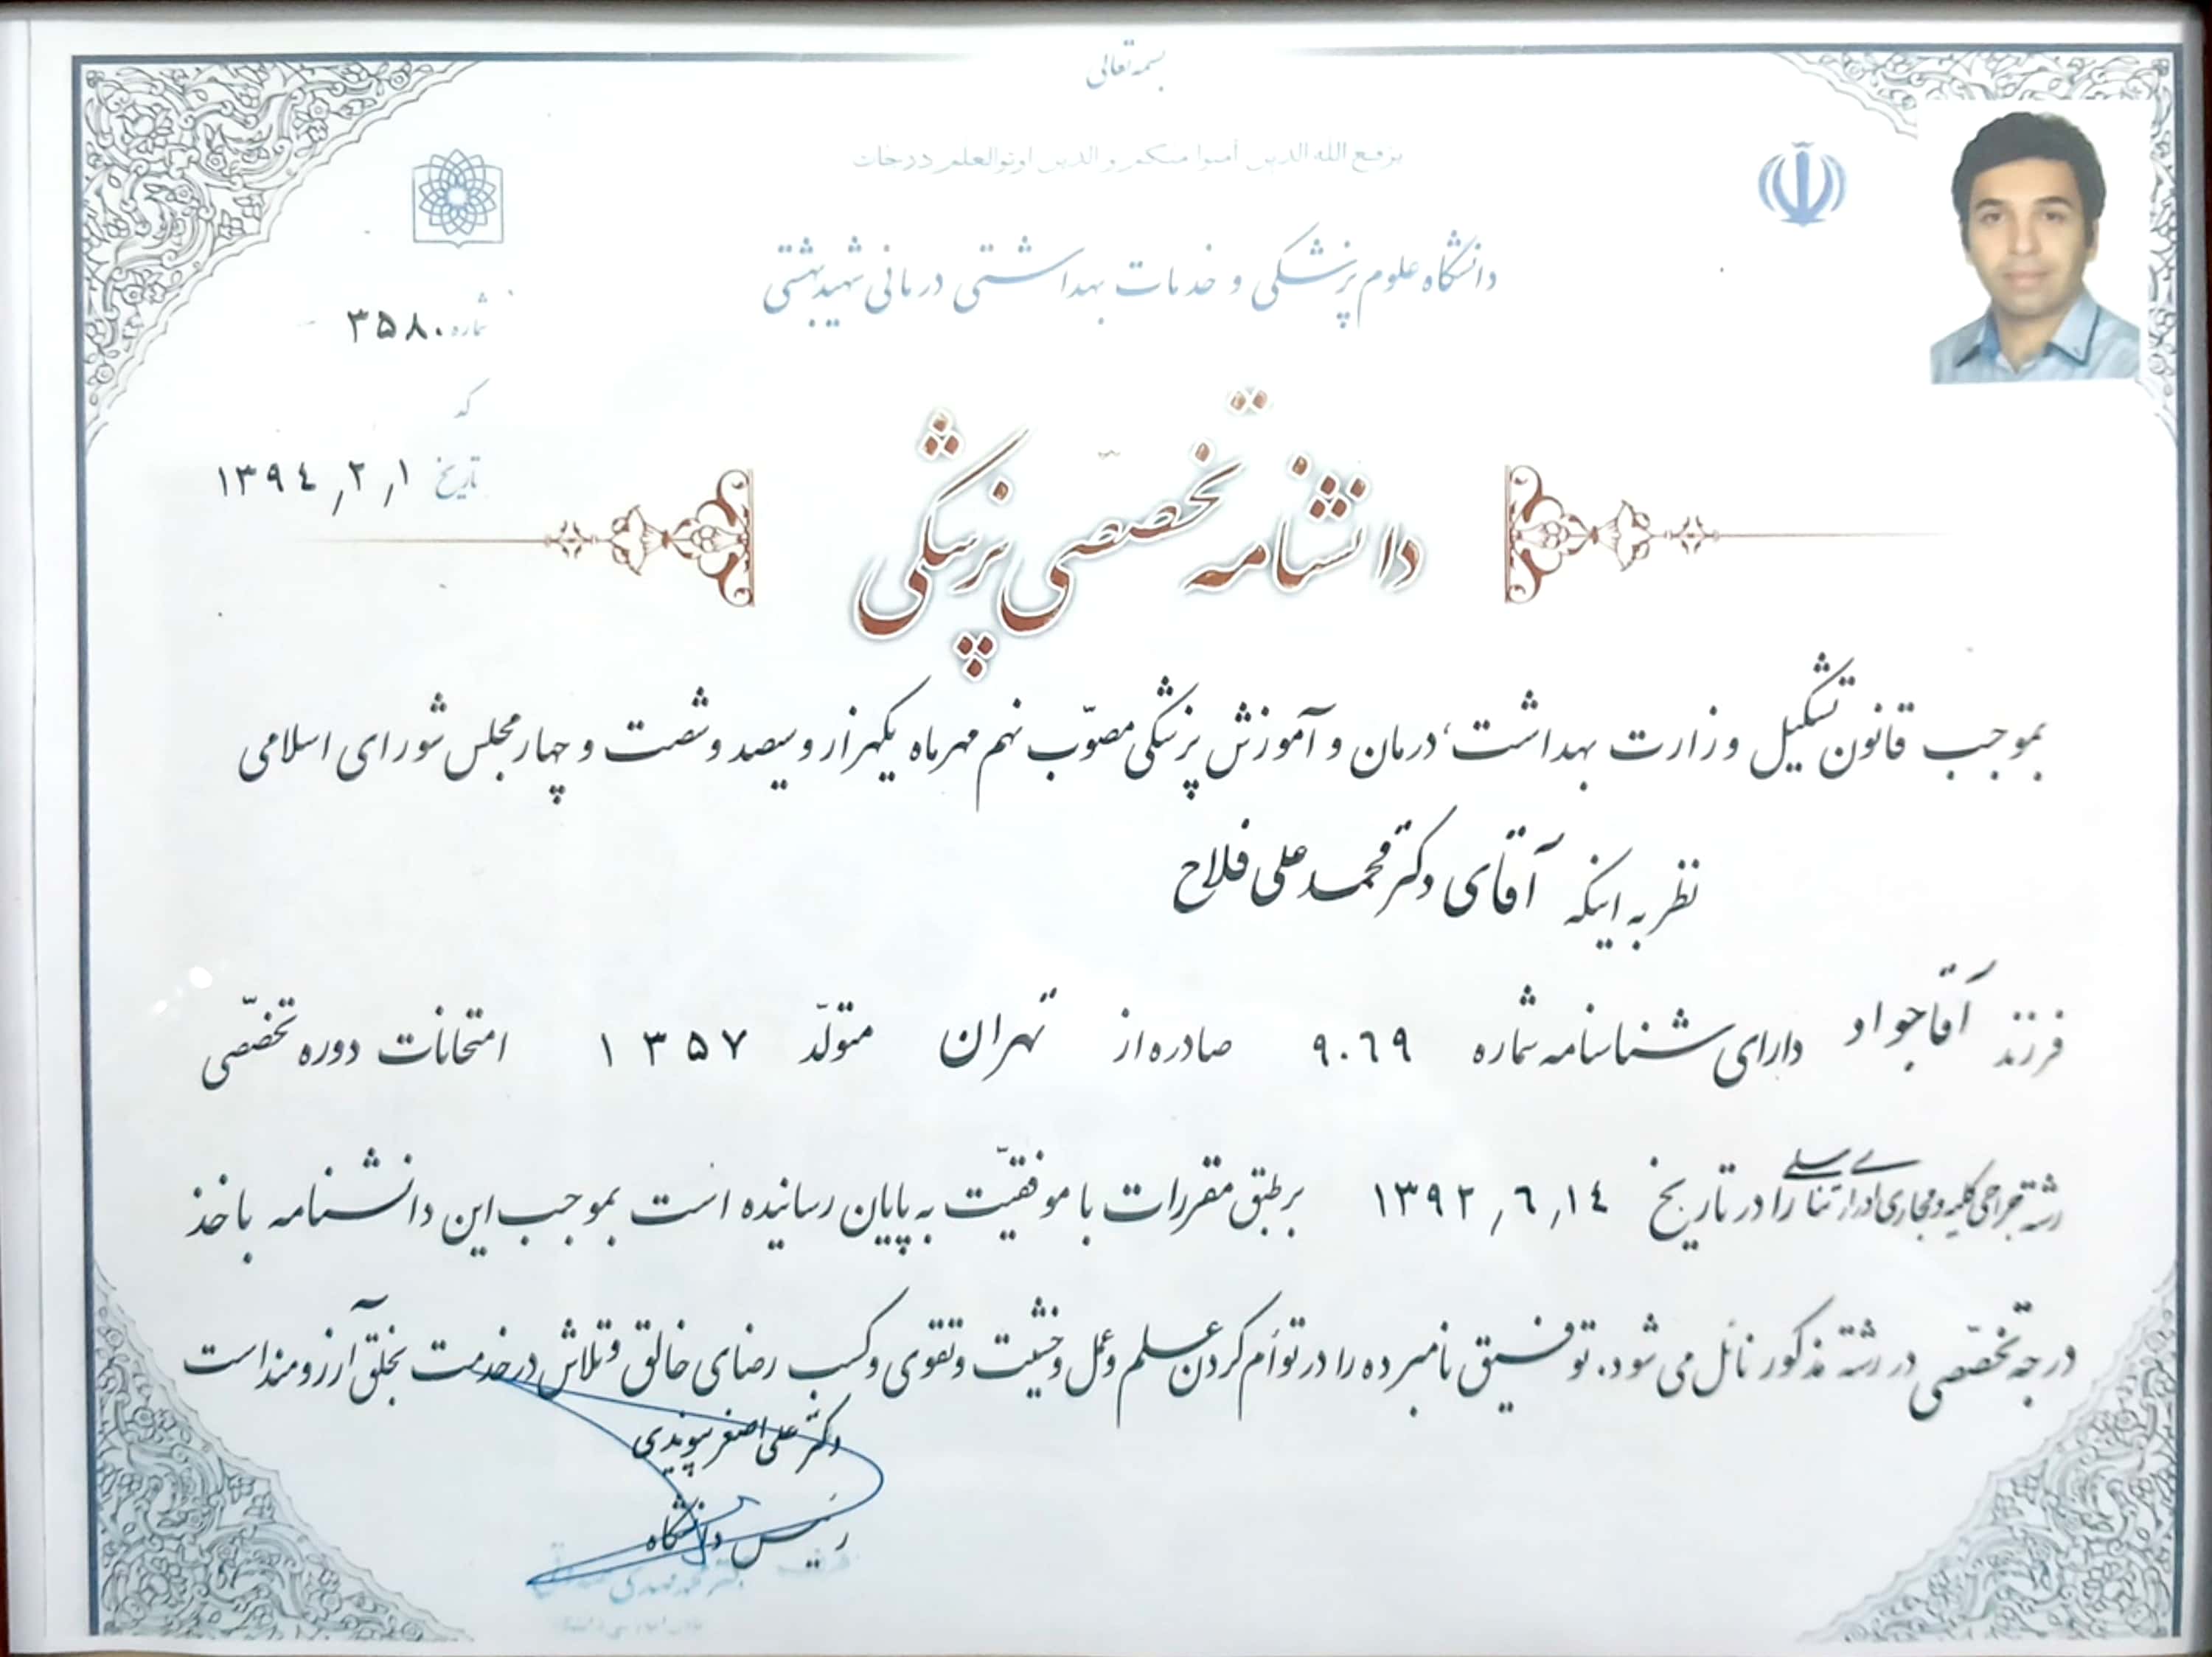 بسمه تعالی
یرفع الله الذین آمنوا منکم و الذین اوتوالعلم درجات
دانشگاه علوم پزشکی و خدمات بهداشتی درمانی شهید بهشتی
شماره ۳۵۸۰
کد
تاریخ ۱۳۹۴٫۲٫۱
دانشنامه تخصصّی پزشکی
بموجب قانون تشکیل وزارت بهداشت، درمان و آموزش پزشکی مصوّب نهم مهرماه یکهزار و سیصد و شصت و چهار مجلس شورای اسلامی
نظر به اینکه آقای دکتر محمد علی فلاح
فرزند آقا جواد دارای شناسنامه شماره ۹۰۶۹ صادره از تهران متولّد ۱۳۵۷ امتحانات دوره تخصّصی
رشته جراحی کلیه و مجاری ادراری تناسلی را در تاریخ ۱۳۹۲٫۶٫۱۴ برطبق مقررات با موفقیّت به پایان رسانیده است بموجب این دانشنامه با خذ
درجه تخصّصی در رشته مذکور نائل می شود. توفیق نامبرده را در توأم کردن علم و عمل و خشیت و تقوی و کسب رضای خالق و تلاش در خدمت بخلق آرزومند است
دکتر علی اصغر پیوندی
رئیس دانشگاه